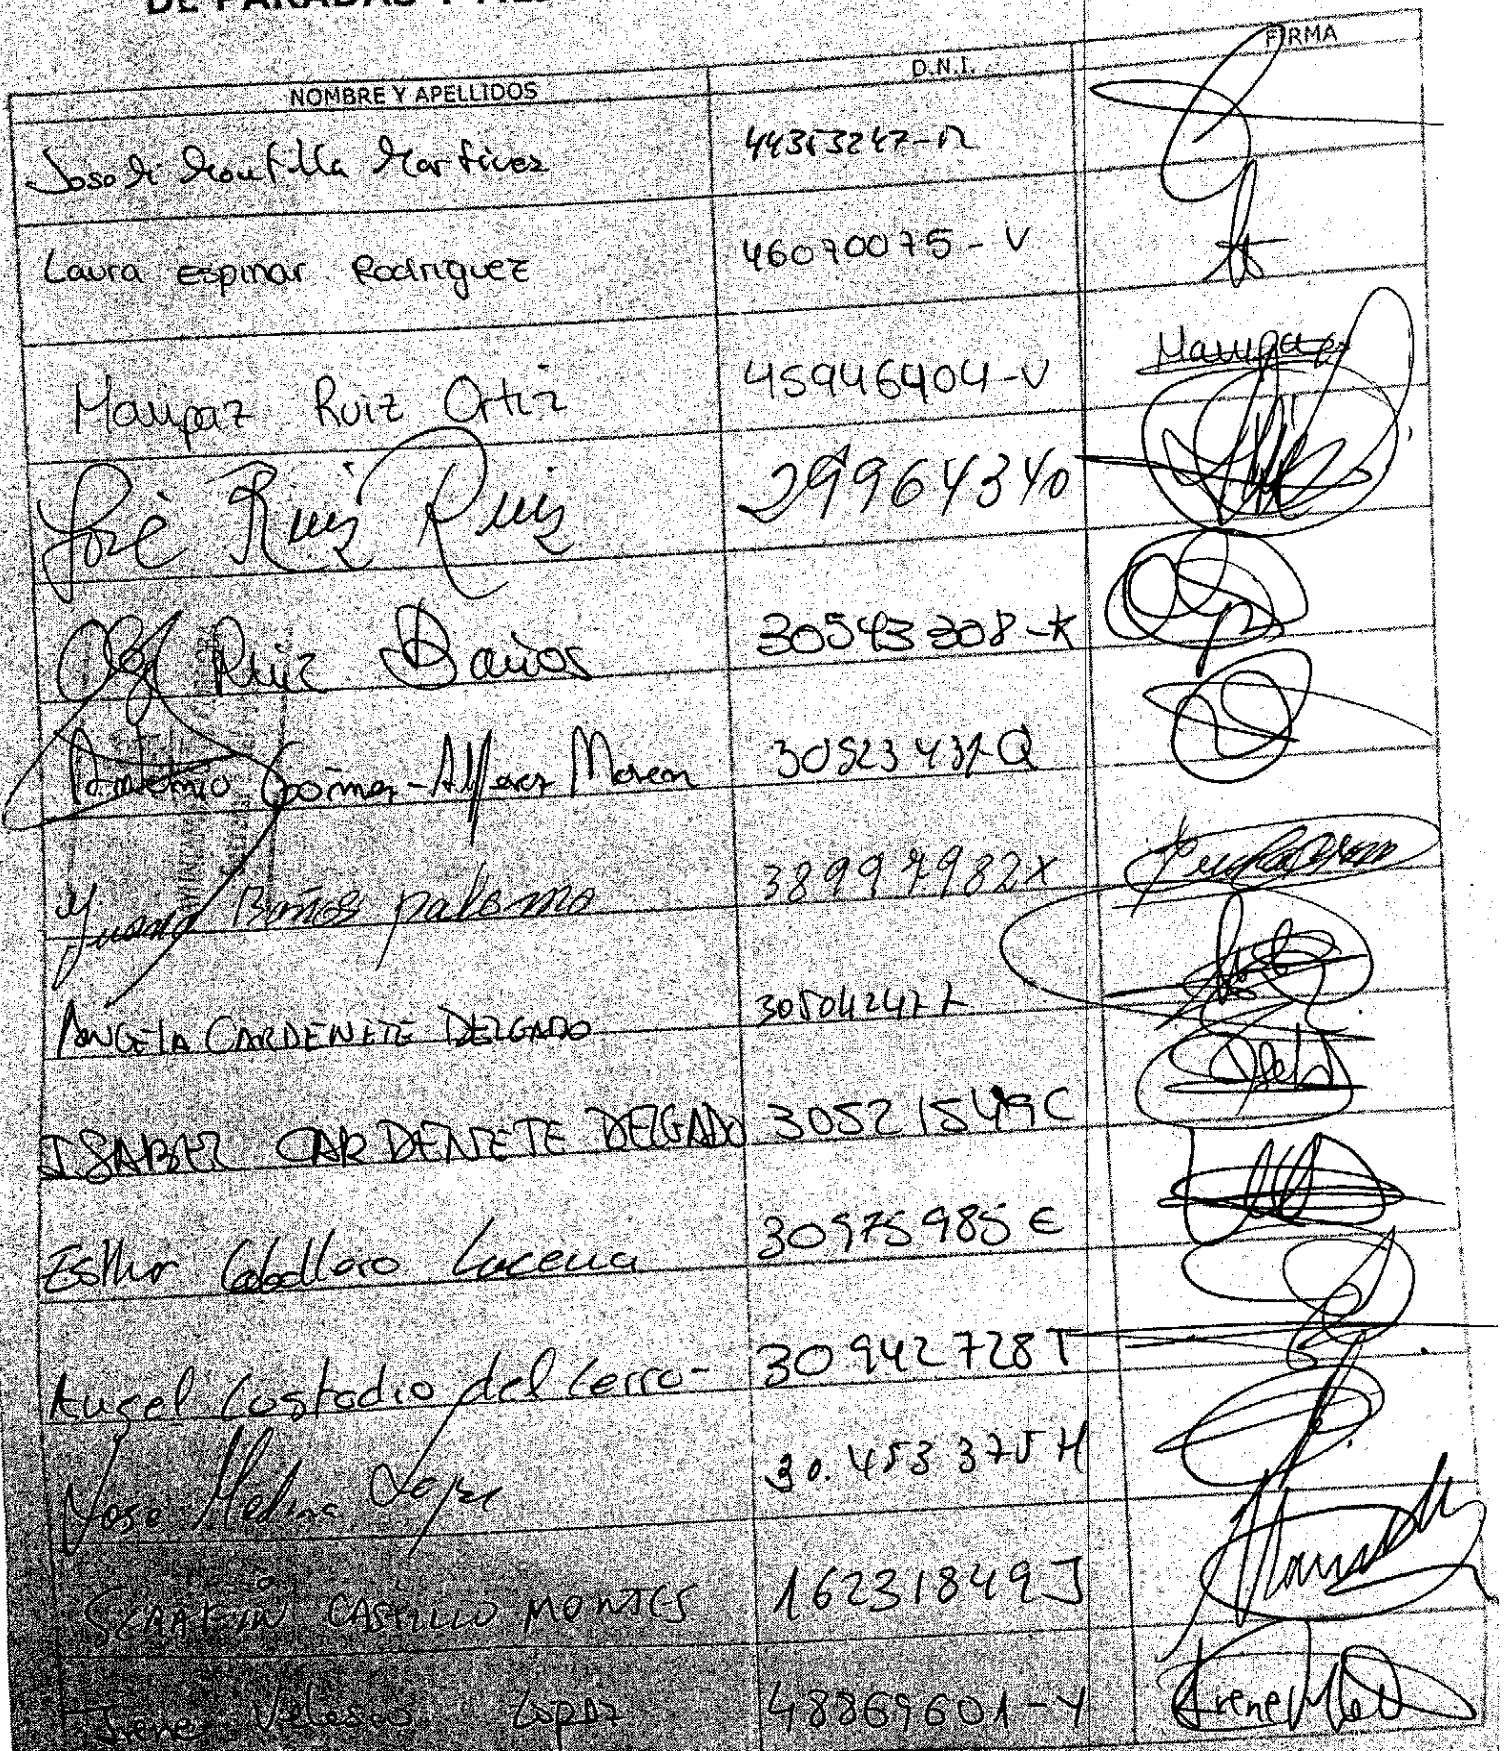 NOMBRE Y APELLIDOS D.N.I. FIRMA
Montilla Martinez
Laura Espinar Rodriguez 46070075-V
Maripaz Ruiz Ortiz 45946404-V Maripaz
José Ruiz Ruiz 29964340
Ruiz Baños 30543308-K
Antonio Gómez-Alferez Moreno
Juana Baños palomo 38997982X
ANGELA CARDENETE DELGADO
ISABEL CARDENETE DELGADO 30521549C
Esther Caballero Lucena 30975985E
Angel Custodio del Cerro- 30942728T
Jose Medina Lopez 30.453375H
SERAFIN CASTILLO MONTES 16231849J
Irene Velasco Lopez 48869601-Y Irene